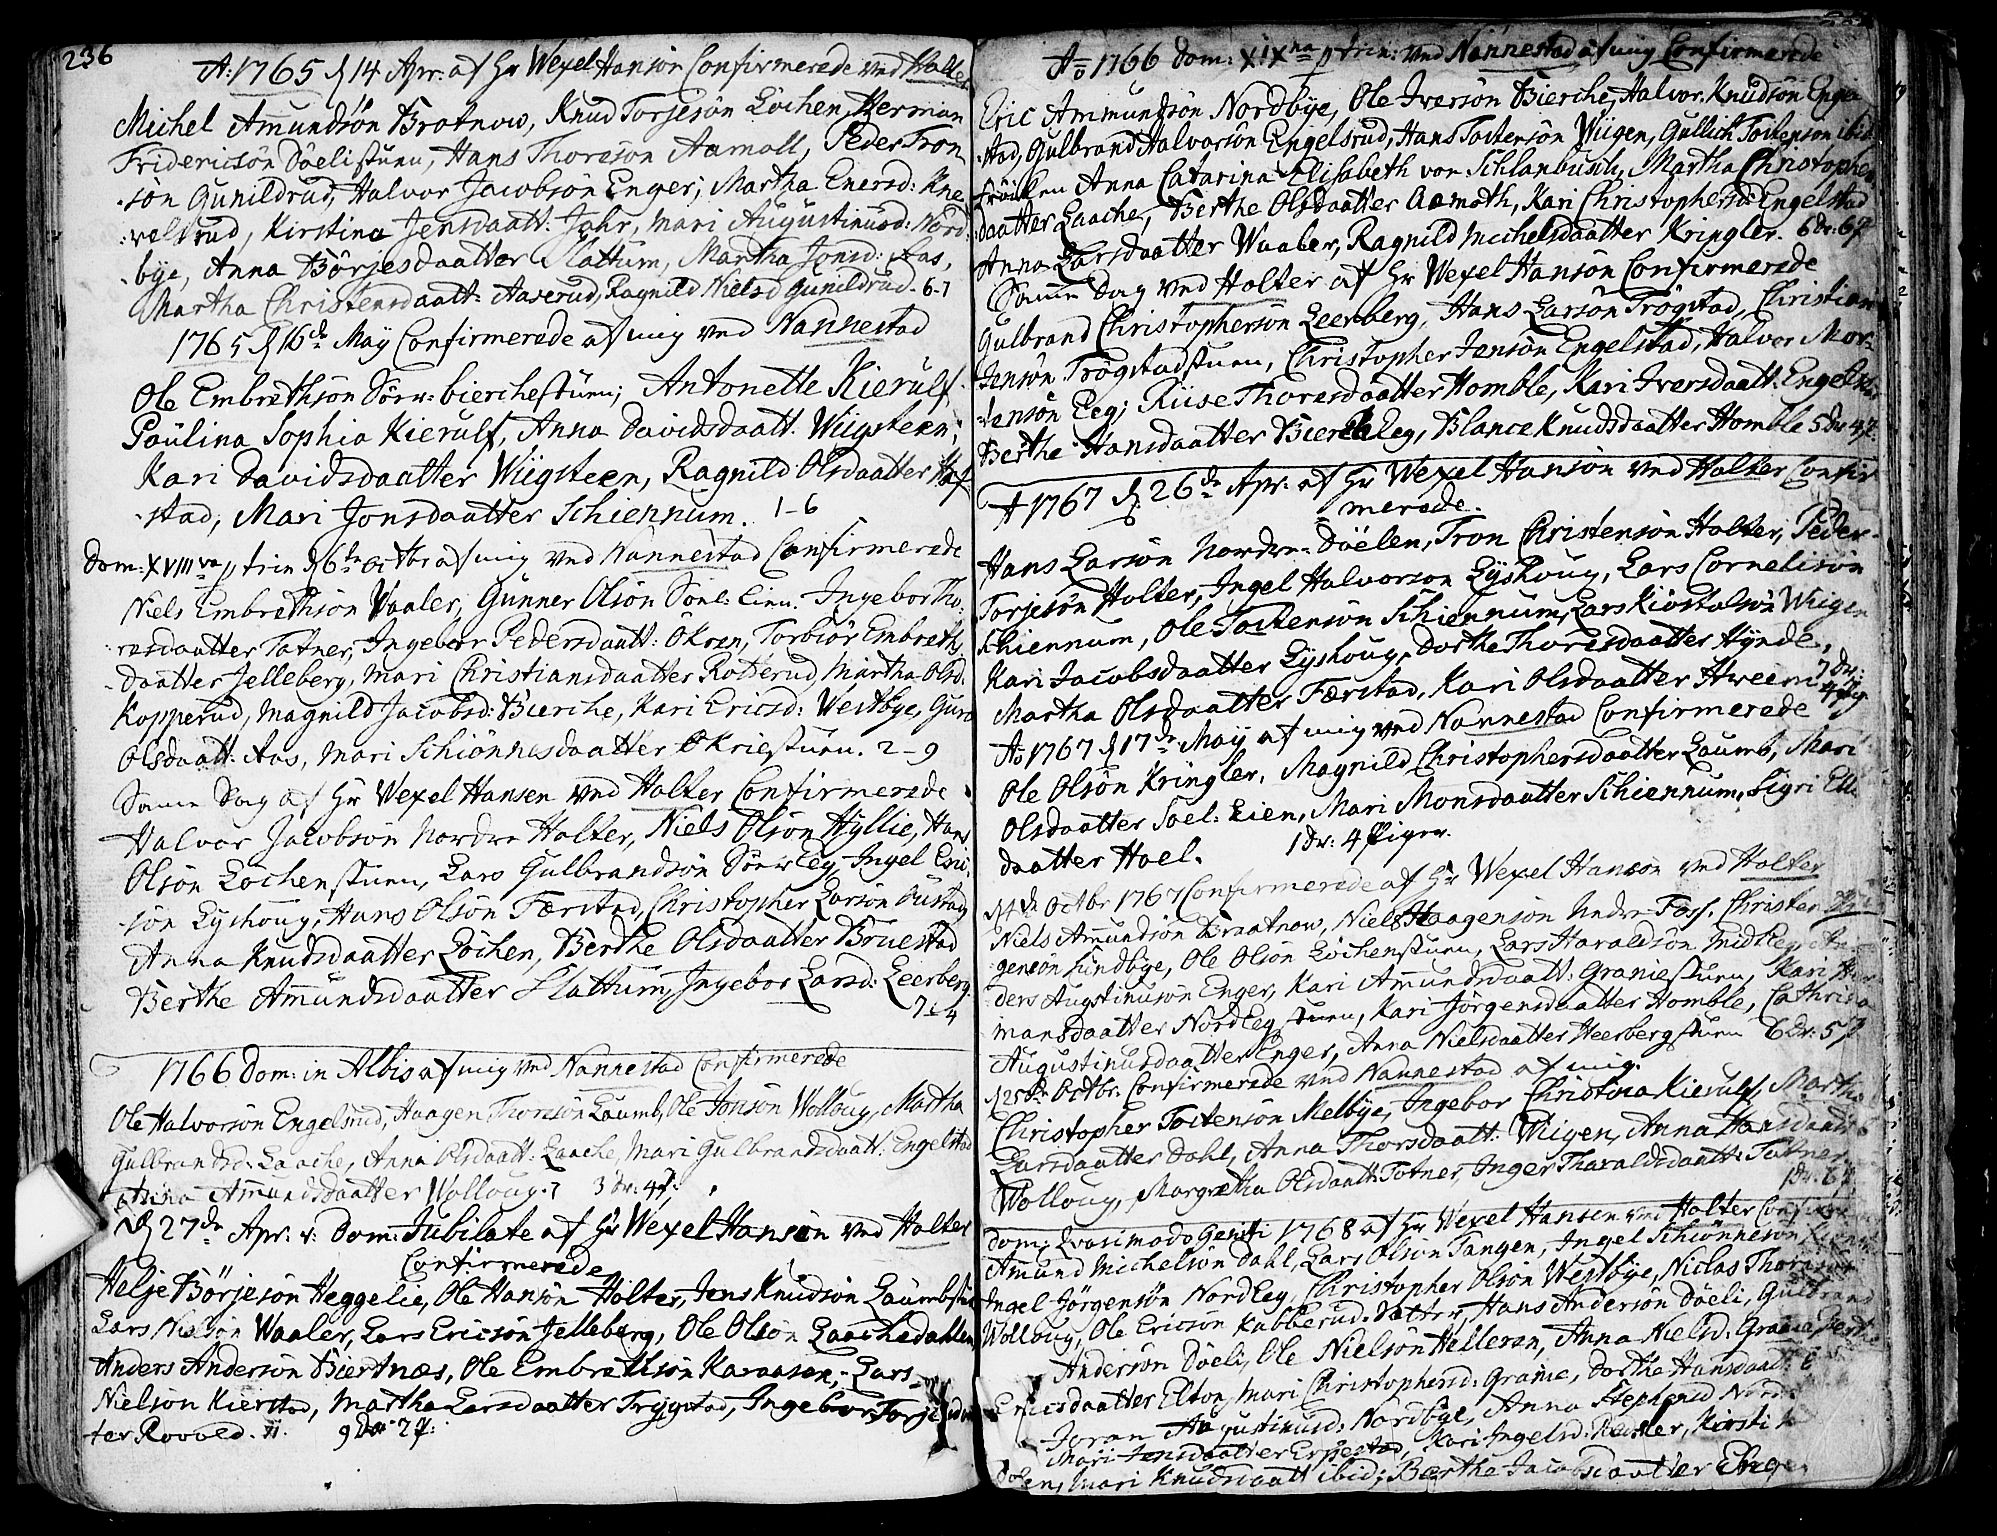 236
A: 1765 d 14 Apr: af Hr Wexel Hansøn Confirmerede ved Holter
Michel Amundsøn Brotnow, Knud Torjesøn Løchen, Herman
Fridericsøn Døelistuen, Hans Thoresøn Aamoll, Peder Tron
søn Gunildrud, Halvor Jacobsøn Enger; Martha Enersd: Kne
velsrud, Kirstine Jensdaatt: Johr, Mari Augustinusd: Nord
bye, Anna Børjesdaatter Slattum, Martha Jonsd: Aas,
Martha Christensdaatt: Aaserud, Ragnild Nielsd Gunildrud. 6-7
1765 d 16de Maÿ Confirmerede af mig ved Nannestad
Ole Embrethsøn Sørbierchestuen; Antonette Kierulf
Paulina Sophia Kierulf, Anna Davidsdaatt. Wiigsteen;
Kari Davidsdaatter Wiigsteen, Ragnild Olsdaatter Haf
stad, Mari Jonsdaatter Schiennum. 1-6
Dom: XVIIIva p trin d 6te Octbr af mig ved Nannestad Confirmerede
Niels Embrethsøn Vaaler, Gunner Olsøn Sønl: Eien. Ingebor Tho
resdaatter Totner, Ingebor Pedersdaatt: Økren, Torbiør Embreths
daatter Jelleberg, Mari Christiansdaatter Rotterud, Martha Olsd.
Kopperud, Magnild Jacobsd: Bierche, Kari Ericsd: Westbye, Guro
Olsdaatt: Aas, Mari Schiønnesdaatter Økriestuen. 2-9
Samme Dag af Hr Wexel Hansen ved Holter Confirmerede
Halvor Jacobsøn Nordre Holter, Niels Olsøn Hyllie, Hans
Olsøn Løchenstuen, Lars Gulbrandsøn Søer Eeg, Ingel Eric
søn Lyshoug, Hans Olsøn Færstad, Christopher Larsøn Bustag
Anna Knudsdaatter Løchen, Berthe Olsdaatter Bruestad
Berthe Amundsdaatter Slattum, Ingebor Larsd: Leerberg.
7-4
1766 Dom: in Albis af mig ved Nannestad Confirmerede
Ole Halvorsøn Engelsrud, Haagen Thoresøn Laumb, Ole Jonsøn Wolloug, Martha
Gulbrandsd: Laache, Anna Olsdaatt: Laache, Mari Gulbrandsdaatt: Engelstad
Anna Amundsdaatter Wolloug. 7 3 dr: 4 p:
d 27de Apr: v: Dom: Jubilate af Hr Wexel Hansen ved Holter
Confirmerede
Helje Børjesøn Heggelie, Ole Hansøn Holter, Jens Knudsøn Laumbstu
Lars Nielsøn Waaler, Lars Ericsøn Jelleberg, Ole Olsøn Laachedahlen
Anders Andersøn Biertnæs, Ole Embrethsøn Karaasen, Lars
Nielsøn Kierstad, Martha Larsdaatter Trygstad, Ingebor Torjesdaa
ter Rovold. 11. 9 Dr 2 p:
Ao 1766 Dom: XIXna p trin: ved Nannestad af mig Confirmerede
Eric Ammundsøn Nordbye, Ole Iversøn Bierche, Halvor Knudsøn Engel
stad, Gulbrand Halvorsøn Engelsrud, Hans Tostensøn Wiigen, Gullich Tostensøn ibid
Frøicken Anna Catarina Elisabeth von Schlanbusch, Martha Christopher
daatter Laache, Berthe Olsdaatter Aamoth, Kari Christophersd: Engelstad
Anna Larsdaatter Waaler, Ragnild Michelsdaatter Kringler. 6 dr: 6 p
Samme Dag ved Holter af Hr Wexel Hansøn Confirmerede
Gulbrand Christophersøn Leerberg, Hans Larsøn Trøgstad, Christian
Jensøn Trøgstadstuen, Christopher Jensøn Engelstad, Halvor Mor
tensøn Eeg; Riise Thoresdaatter Homble, Kari Iversdaatt: Engelstad
Berthe Hansdaatter Bierche Eeg, Blance Knudsdaatter Homble 5 dr 4 p.
A 1767 d 26de Apr: af Hr Wexel Hansøn ved Holter Confir
merede.
Hans Larsøn Nordre Døelen, Tron Christensøn Holter, Peder
Torjesøn Holter, Ingel Halvorsøn Lyshoug, Lars Cornelisøn
Schiennum, Ole Tostensøn Schiennum, Lars Kiøstolsøn Wiigen
Kari Jacobsdaatter Lyshoug, Dorthe Thoresdaatter Hynde,
Martha Olsdaatter Færstad, Kari Olsdaatter Hweem 7 dr: 4 pig
Ao 1767 d 17de Maÿ af mig ved Nannestad Confirmerede
Ole Olsøn Kringler, Magnild Christophersdaatter Laumb, Mari
Olsdaatter Soel: Eien, Mari Monsdaatter Schiennum, Sigri Ell
daatter Hoel. 1 dr: 4 Piger.
d 4de Octbr 1767 Confirmerede af Hr Wexel Hansøn ved Holter
Niels Amundsøn Braatnow, Niels Haagensøn Nedre Foss. Christen
gensøn Lundbye, Ole Olsøn Løchenstuen, Lars Haraldsøn MidtEeg, An
ders Augstinusøn Enger, Kari Amundsdaatt: Graniestuen, Kari Her
mansdaatter NordEegstuen, Kari Jørgensdaatter Homble, Cathrina
Augustinusdaatter Enger, Anna Nielsdaatter Heerbergstuen 6 dr: 5 p
d 25de Octbr: Confirmerede ved Nannestad af mig.
Christopher Tostensøn Melbye, Ingebor Christina Kierulf, Martha
Larsdaatter Dahl, Anna Thorsdaatt: Wiigen, Anna Hansdaatt
Wolloug, Margretha Olsdaatt: Totner, Inger Tharaldsdaatt: Totner
1 dr. 6 p
Dom: Qvasimodo Geniti 1768 af Hr Wexel Hansen ved Holter Confirm
Amund Michelsøn Dahl, Lars Olsøn Tangen, Ingel Schiønnesøn
Ingel Jørgensøn NordEeg, Christopher Olsøn Westbye, Niclas Thoresøn
Wolloug, Ole Ericsøn Kabberud-Datter, Hans Andersøn Døeli, Gulbrand
Andersøn Døeli, Ole Nielsøn Helleren, Anna Nielsd: Granie, Berthe
Ericsdaatter Elton, Mari Christophersd: Granie, Dorthe Hansdaatt:
Joran Augustinusd: Nordbye, Anna Stephensd Nord
Mari Jensdaatter Erpestad, Kari Ingelsd: Røtter, Kirsti
en, Mari Knudsdaatt ibid; Berthe Jacobsdaatter Enge